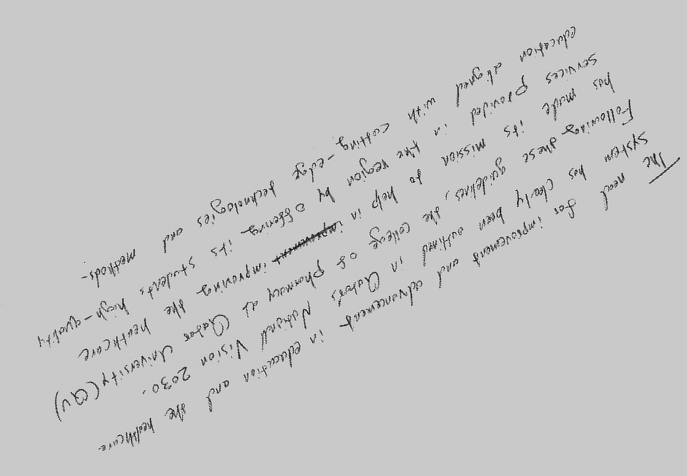 The need for improvement and advancement in education and the healthcare
system has clearly been outlined in Qatar's National Vision 2030.
Following these guidelines, the college of pharmacy at Qatar University (QU)
has made its mission to help in improving the healthcare
services provided in the region by offering its students high-quality
education aligned with cutting-edge technologies and methods.